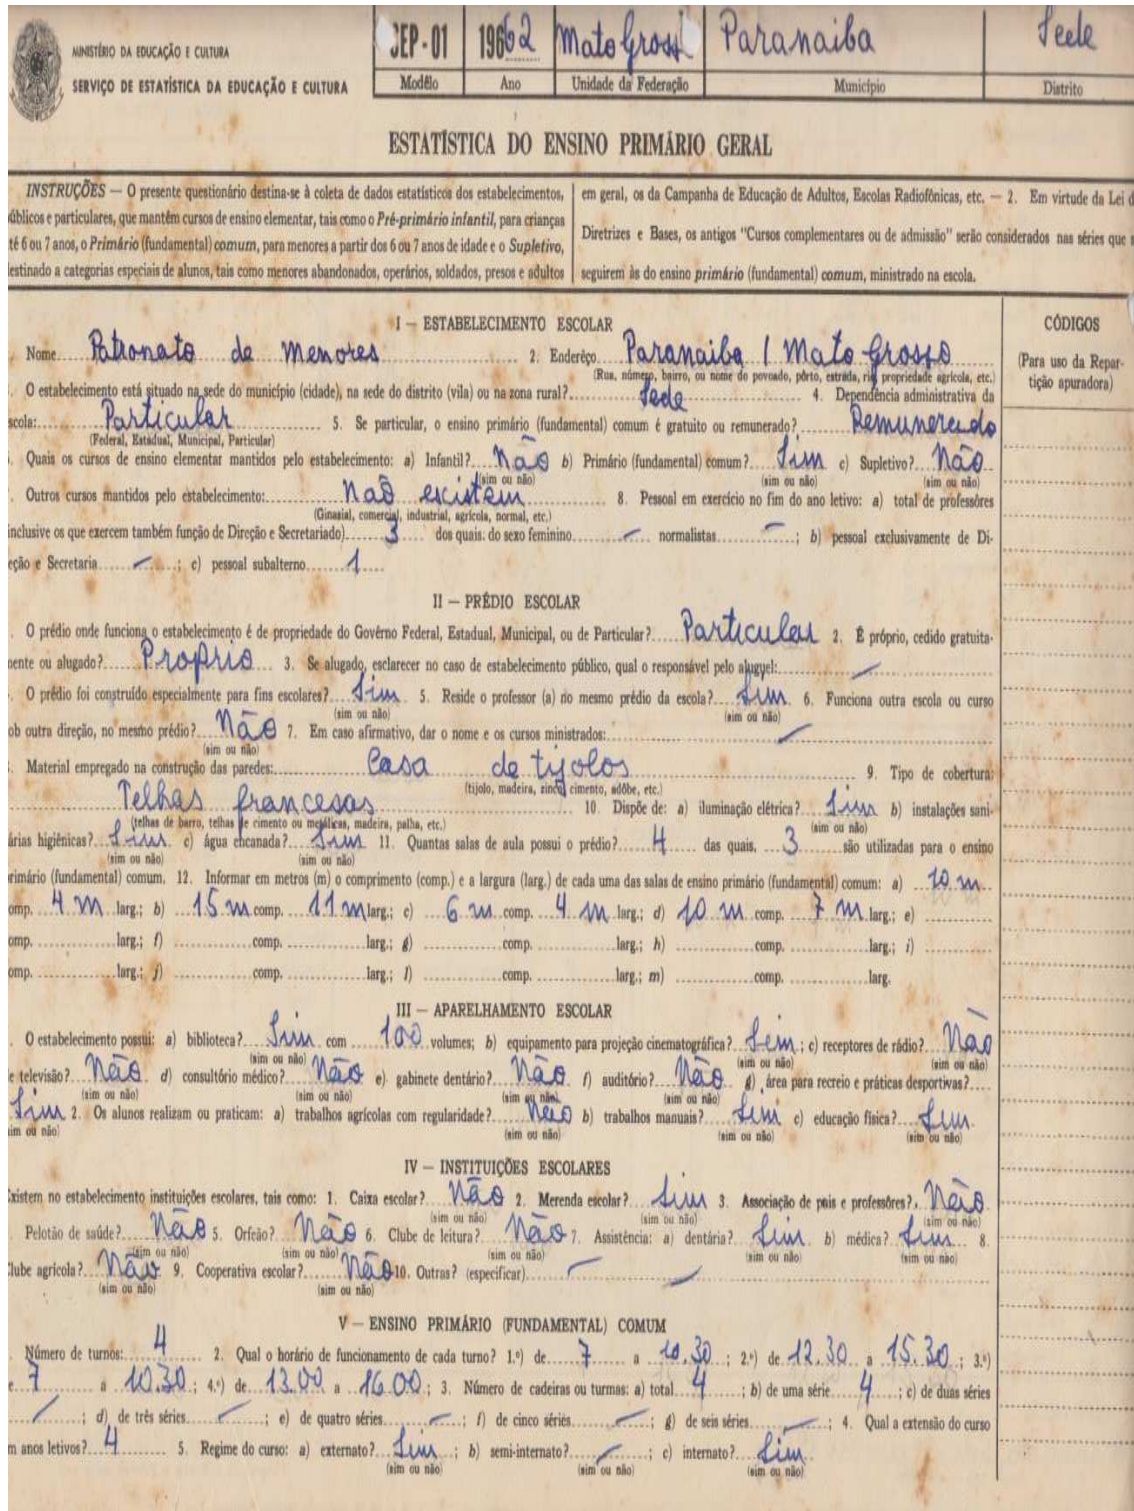 MINISTÉRIO DA EDUCAÇÃO E CULTURA
SERVIÇO DE ESTATÍSTICA DA EDUCAÇÃO E CULTURA
DEP-01 1962 Mato Grosso Paranaiba Sede
Modêlo Ano Unidade da Federação Município Distrito
ESTATÍSTICA DO ENSINO PRIMÁRIO GERAL
INSTRUÇÕES — O presente questionário destina-se à coleta de dados estatísticos dos estabelecimentos,
úblicos e particulares, que mantêm cursos de ensino elementar, tais como o Pré-primário infantil, para crianças
té 6 ou 7 anos, o Primário (fundamental) comum, para menores a partir dos 6 ou 7 anos de idade e o Supletivo,
estinado a categorias especiais de alunos, tais como menores abandonados, operários, soldados, presos e adultos
em geral, os da Campanha de Educação de Adultos, Escolas Radiofônicas, etc. — 2. Em virtude da Lei d
Diretrizes e Bases, os antigos "Cursos complementares ou de admissão" serão considerados nas séries que s
seguirem às do ensino primário (fundamental) comum, ministrado na escola.
CÓDIGOS
(Para uso da Repar-
tição apuradora)
I — ESTABELECIMENTO ESCOLAR
Nome Patronato de Menores 2. Enderêço Paranaiba / Mato Grosso
(Rua, número, bairro, ou nome do povoado, pôrto, estrada, rio, propriedade agrícola, etc.)
O estabelecimento está situado na sede do município (cidade), na sede do distrito (vila) ou na zona rural? Sede 4. Dependência administrativa da
scola: Particular 5. Se particular, o ensino primário (fundamental) comum é gratuito ou remunerado? Remunerado
(Federal, Estadual, Municipal, Particular)
. Quais os cursos de ensino elementar mantidos pelo estabelecimento: a) Infantil? Não b) Primário (fundamental) comum? Sim c) Supletivo? Não
(sim ou não) (sim ou não) (sim ou não)
. Outros cursos mantidos pelo estabelecimento: Não escistem 8. Pessoal em exercício no fim do ano letivo: a) total de professôres
(Ginasial, comercial, industrial, agrícola, normal, etc.)
inclusive os que exercem também função de Direção e Secretariado) 3 dos quais: do sexo feminino — normalistas —; b) pessoal exclusivamente de Di-
eção e Secretaria —; c) pessoal subalterno 1
II — PRÉDIO ESCOLAR
. O prédio onde funciona o estabelecimento é de propriedade do Govêrno Federal, Estadual, Municipal, ou de Particular? Particular 2. É próprio, cedido gratuita-
mente ou alugado? Proprio 3. Se alugado, esclarecer no caso de estabelecimento público, qual o responsável pelo aluguel: —
. O prédio foi construído especialmente para fins escolares? Sim 5. Reside o professor (a) no mesmo prédio da escola? Sim 6. Funciona outra escola ou curso
(sim ou não) (sim ou não)
ob outra direção, no mesmo prédio? Não 7. Em caso afirmativo, dar o nome e os cursos ministrados: —
(sim ou não)
. Material empregado na construção das paredes: Casa de tijolos 9. Tipo de cobertura:
(tijolo, madeira, zinco, cimento, adôbe, etc.)
Telhas francesas 10. Dispõe de: a) iluminação elétrica? Sim b) instalações sani-
(telhas de barro, telhas de cimento ou metálicas, madeira, palha, etc.) (sim ou não)
árias higiênicas? Sim c) água encanada? Sim 11. Quantas salas de aula possui o prédio? 4 das quais, 3 são utilizadas para o ensino
(sim ou não) (sim ou não)
rimário (fundamental) comum. 12. Informar em metros (m) o comprimento (comp.) e a largura (larg.) de cada uma das salas de ensino primário (fundamental) comum: a) 10 m
omp. 4 m larg.; b) 15 m comp. 11 m larg.; c) 6 m comp. 4 m larg.; d) 10 m comp. 7 m larg.; e)
omp. larg.; f) comp. larg.; g) comp. larg.; h) comp. larg.; i)
omp. larg.; j) comp. larg.; l) comp. larg.; m) comp. larg.
III — APARELHAMENTO ESCOLAR
. O estabelecimento possui: a) biblioteca? Sim com 100 volumes; b) equipamento para projeção cinematográfica? Sim; c) receptores de rádio? Não
(sim ou não) (sim ou não) (sim ou não)
e televisão? Não d) consultório médico? Não e) gabinete dentário? Não f) auditório? Não g) área para recreio e práticas desportivas?
(sim ou não) (sim ou não) (sim ou não) (sim ou não)
Sim 2. Os alunos realizam ou praticam: a) trabalhos agrícolas com regularidade? Não b) trabalhos manuais? Sim c) educação física? Sim
im ou não) (sim ou não) (sim ou não) (sim ou não)
IV — INSTITUIÇÕES ESCOLARES
Existem no estabelecimento instituições escolares, tais como: 1. Caixa escolar? Não 2. Merenda escolar? Sim 3. Associação de pais e professôres? Não
(sim ou não) (sim ou não) (sim ou não)
. Pelotão de saúde? Não 5. Orfeão? Não 6. Clube de leitura? Não 7. Assistência: a) dentária? Sim b) médica? Sim 8.
(sim ou não) (sim ou não) (sim ou não) (sim ou não) (sim ou não)
lube agrícola? Não 9. Cooperativa escolar? Não 10. Outras? (especificar) — —
(sim ou não) (sim ou não)
V — ENSINO PRIMÁRIO (FUNDAMENTAL) COMUM
Número de turnos: 4 2. Qual o horário de funcionamento de cada turno? 1.º) de 7 a 10.30; 2.º) de 12.30 a 15.30; 3.º)
e 7 a 10.30; 4.º) de 13.00 a 16.00; 3. Número de cadeiras ou turmas: a) total 4; b) de uma série 4; c) de duas séries
—; d) de três séries —; e) de quatro séries —; f) de cinco séries —; g) de seis séries —; 4. Qual a extensão do curso
m anos letivos? 4 5. Regime do curso: a) externato? Sim; b) semi-internato? —; c) internato? Sim
(sim ou não) (sim ou não) (sim ou não)